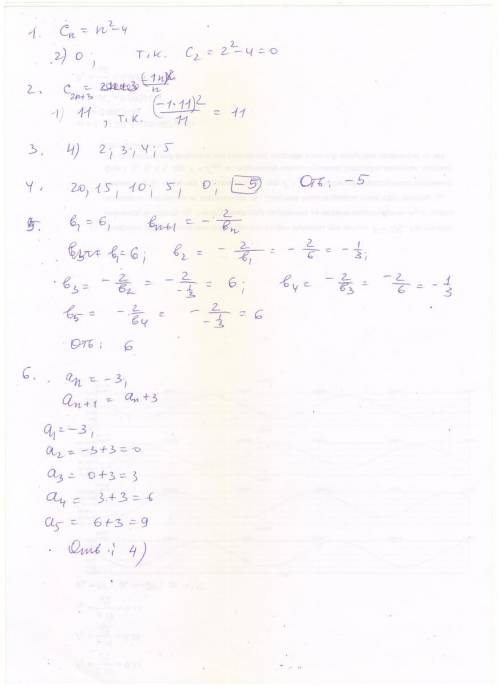 1. Cn = n²-4
2) 0; т.к. C₂ = 2²-4=0
2. C = (-1n)²/n
1) 11, т.к. (-1·11)²/11 = 11
3. 4) 2; 3; 4; 5
4. 20, 15, 10; 5, 0; -5 Отв: -5
5. b₁ = 6, bn+1 = - 2/bn
b₁ = 6; b₂ = - 2/b₁ = - 2/6 = - 1/3;
b₃ = - 2/b₂ = - 2/-1/3 = 6; b₄ = - 2/b₃ = -2/6 = - 1/3
b₅ = - 2/b₄ = - 2/-1/3 = 6
Отв: 6
6. an = -3,
an+1 = an+3
a₁ = -3,
a₂ = -3+3=0
a₃ = 0+3=3
a₄ = 3+3=6
a₅ = 6+3=9
Отв: 4)